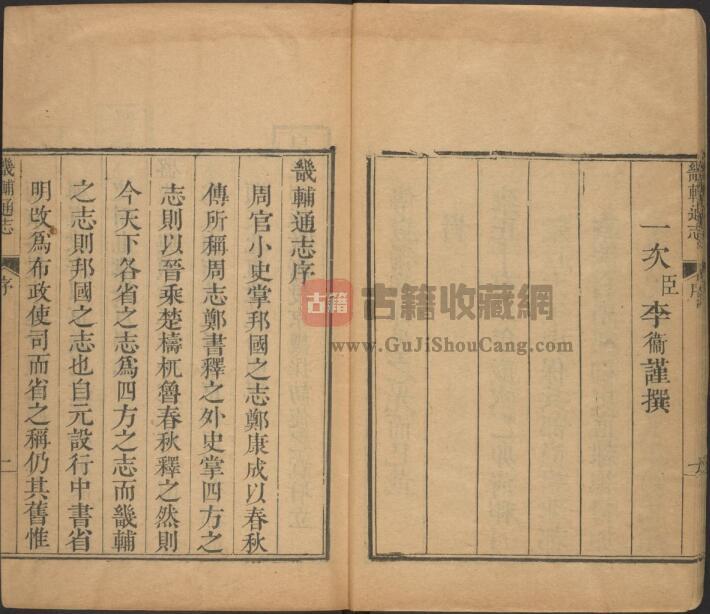 畿輔通志
一次臣李衞謹撰
畿輔通志序
周官小史掌邦國之志鄭康成以春秋
傳所稱周志鄭書釋之外史掌四方之
志則以晉乘楚檮杌魯春秋釋之然則
今天下各省之志爲四方之志而畿輔
之志則邦國之志也自元設行中書省
明改爲布政使司而省之稱仍其舊惟
畿輔通志
序
一
古籍
古籍收藏網
www.GuJiShouCang.com